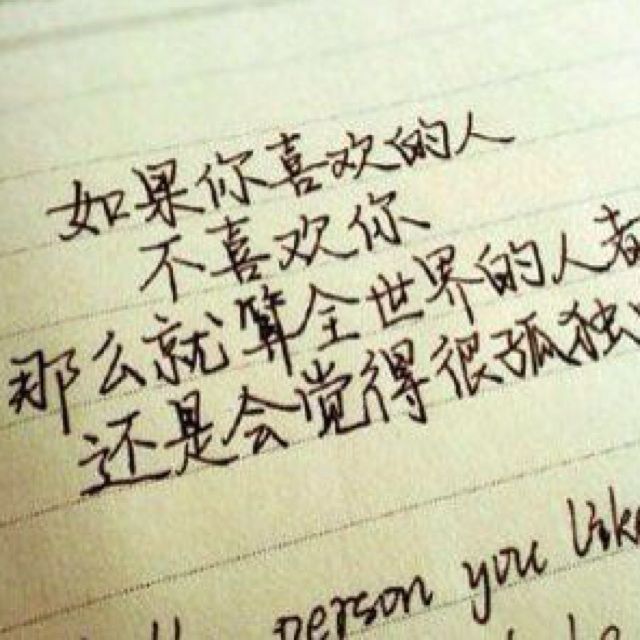 如果你喜欢的人
不喜欢你
那么就算全世界的人都
还是会觉得很孤独
person you like